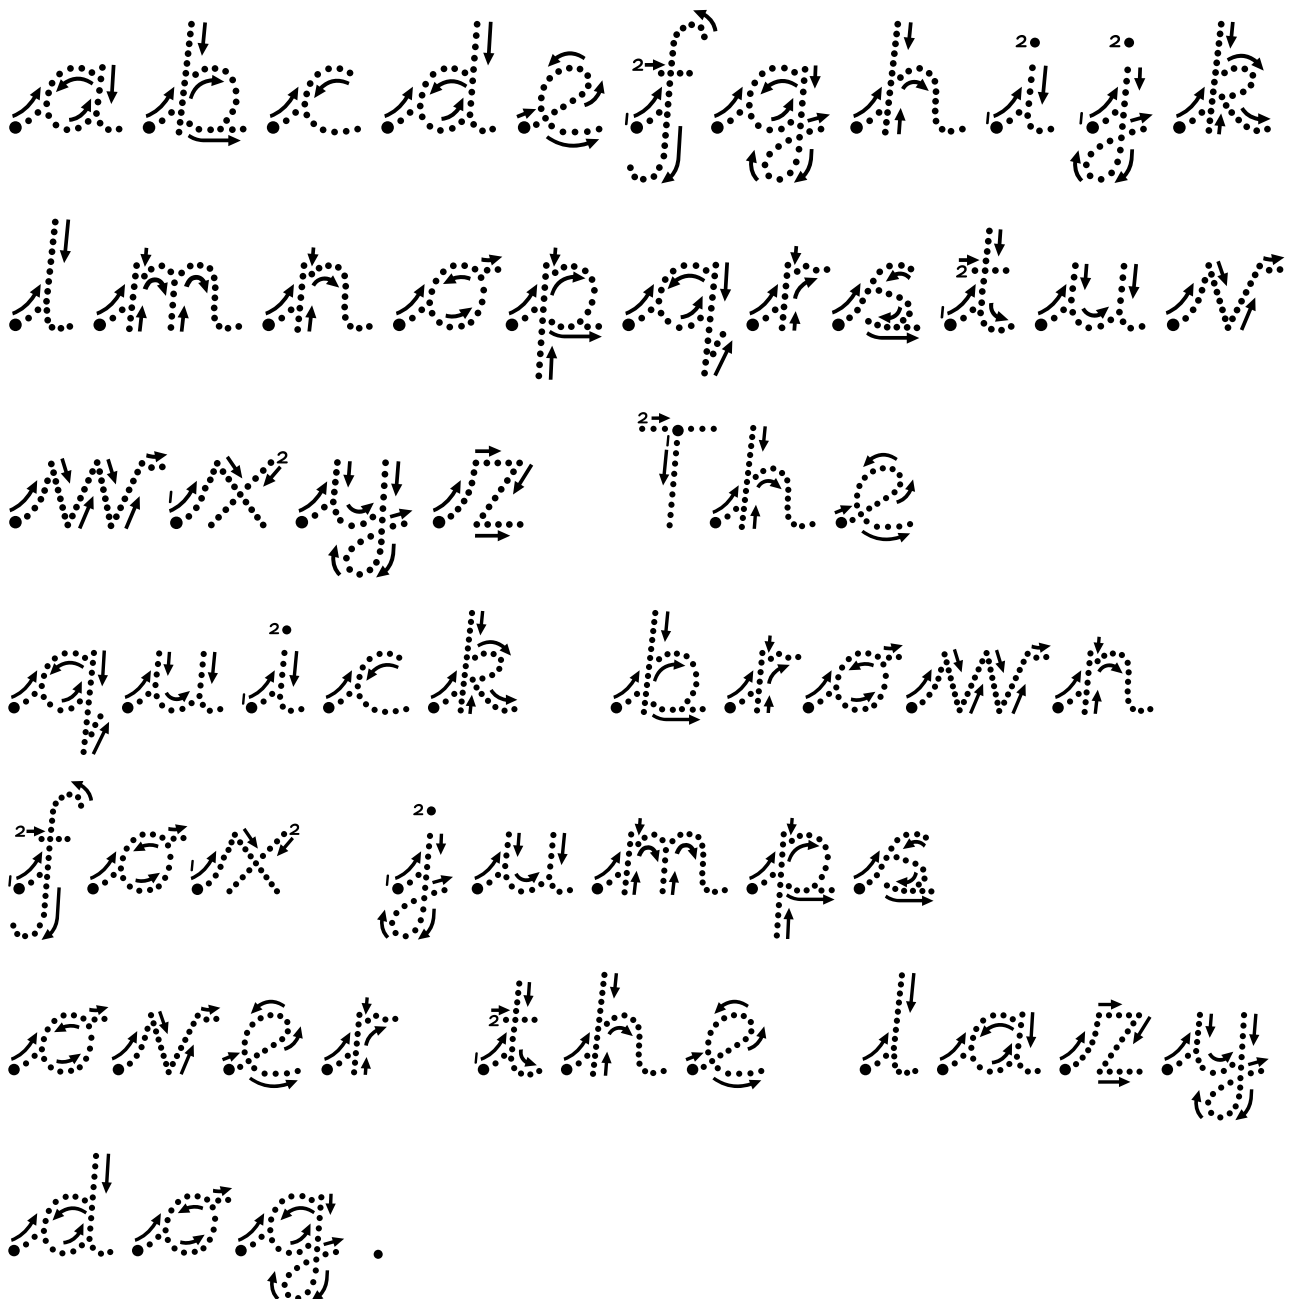 a b c d e f g h i j k
l m n o p q r s t u v
w x y z The
quick brown
fox jumps
over the lazy
dog.